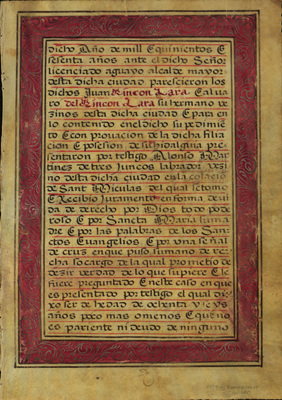 dicho Año de mill E quinientos E
sesenta años ante el dicho Señor
licenciado aguayo alcalde mayor
desta dicha ciudad parescieron los
dichos Juan Rincon Lara. E alvaro
del Rincon Lara su hermano ve
zinos desta dicha ciudad E para en
lo contenido en el dicho su pedimie
to E con provacion de la dicha filia
cion E posesion de su hidalguia pre
sentaron por testigo Alonso Mar
tinez de tres Juncos labrador vezi
no desta dicha ciudad en la colacio
de Sant Niculas del qual se tomo
E Recibio Juramento en forma de vi
da de derecho por Dios todo pode
roso E por Sancta Maria su ma
dre E por las palabras de los Sanc
tos Evangelios E por una señal
de cruz en que puso su mano de re
cha so cargo de la qual prometio de
dezir verdad de lo que supiere E le
fuere preguntado E neste caso en que
es presentado por testigo el qual di
xo ser de hedad de ochenta
años poco mas o menos E que no
es pariente ni deudo de ninguno